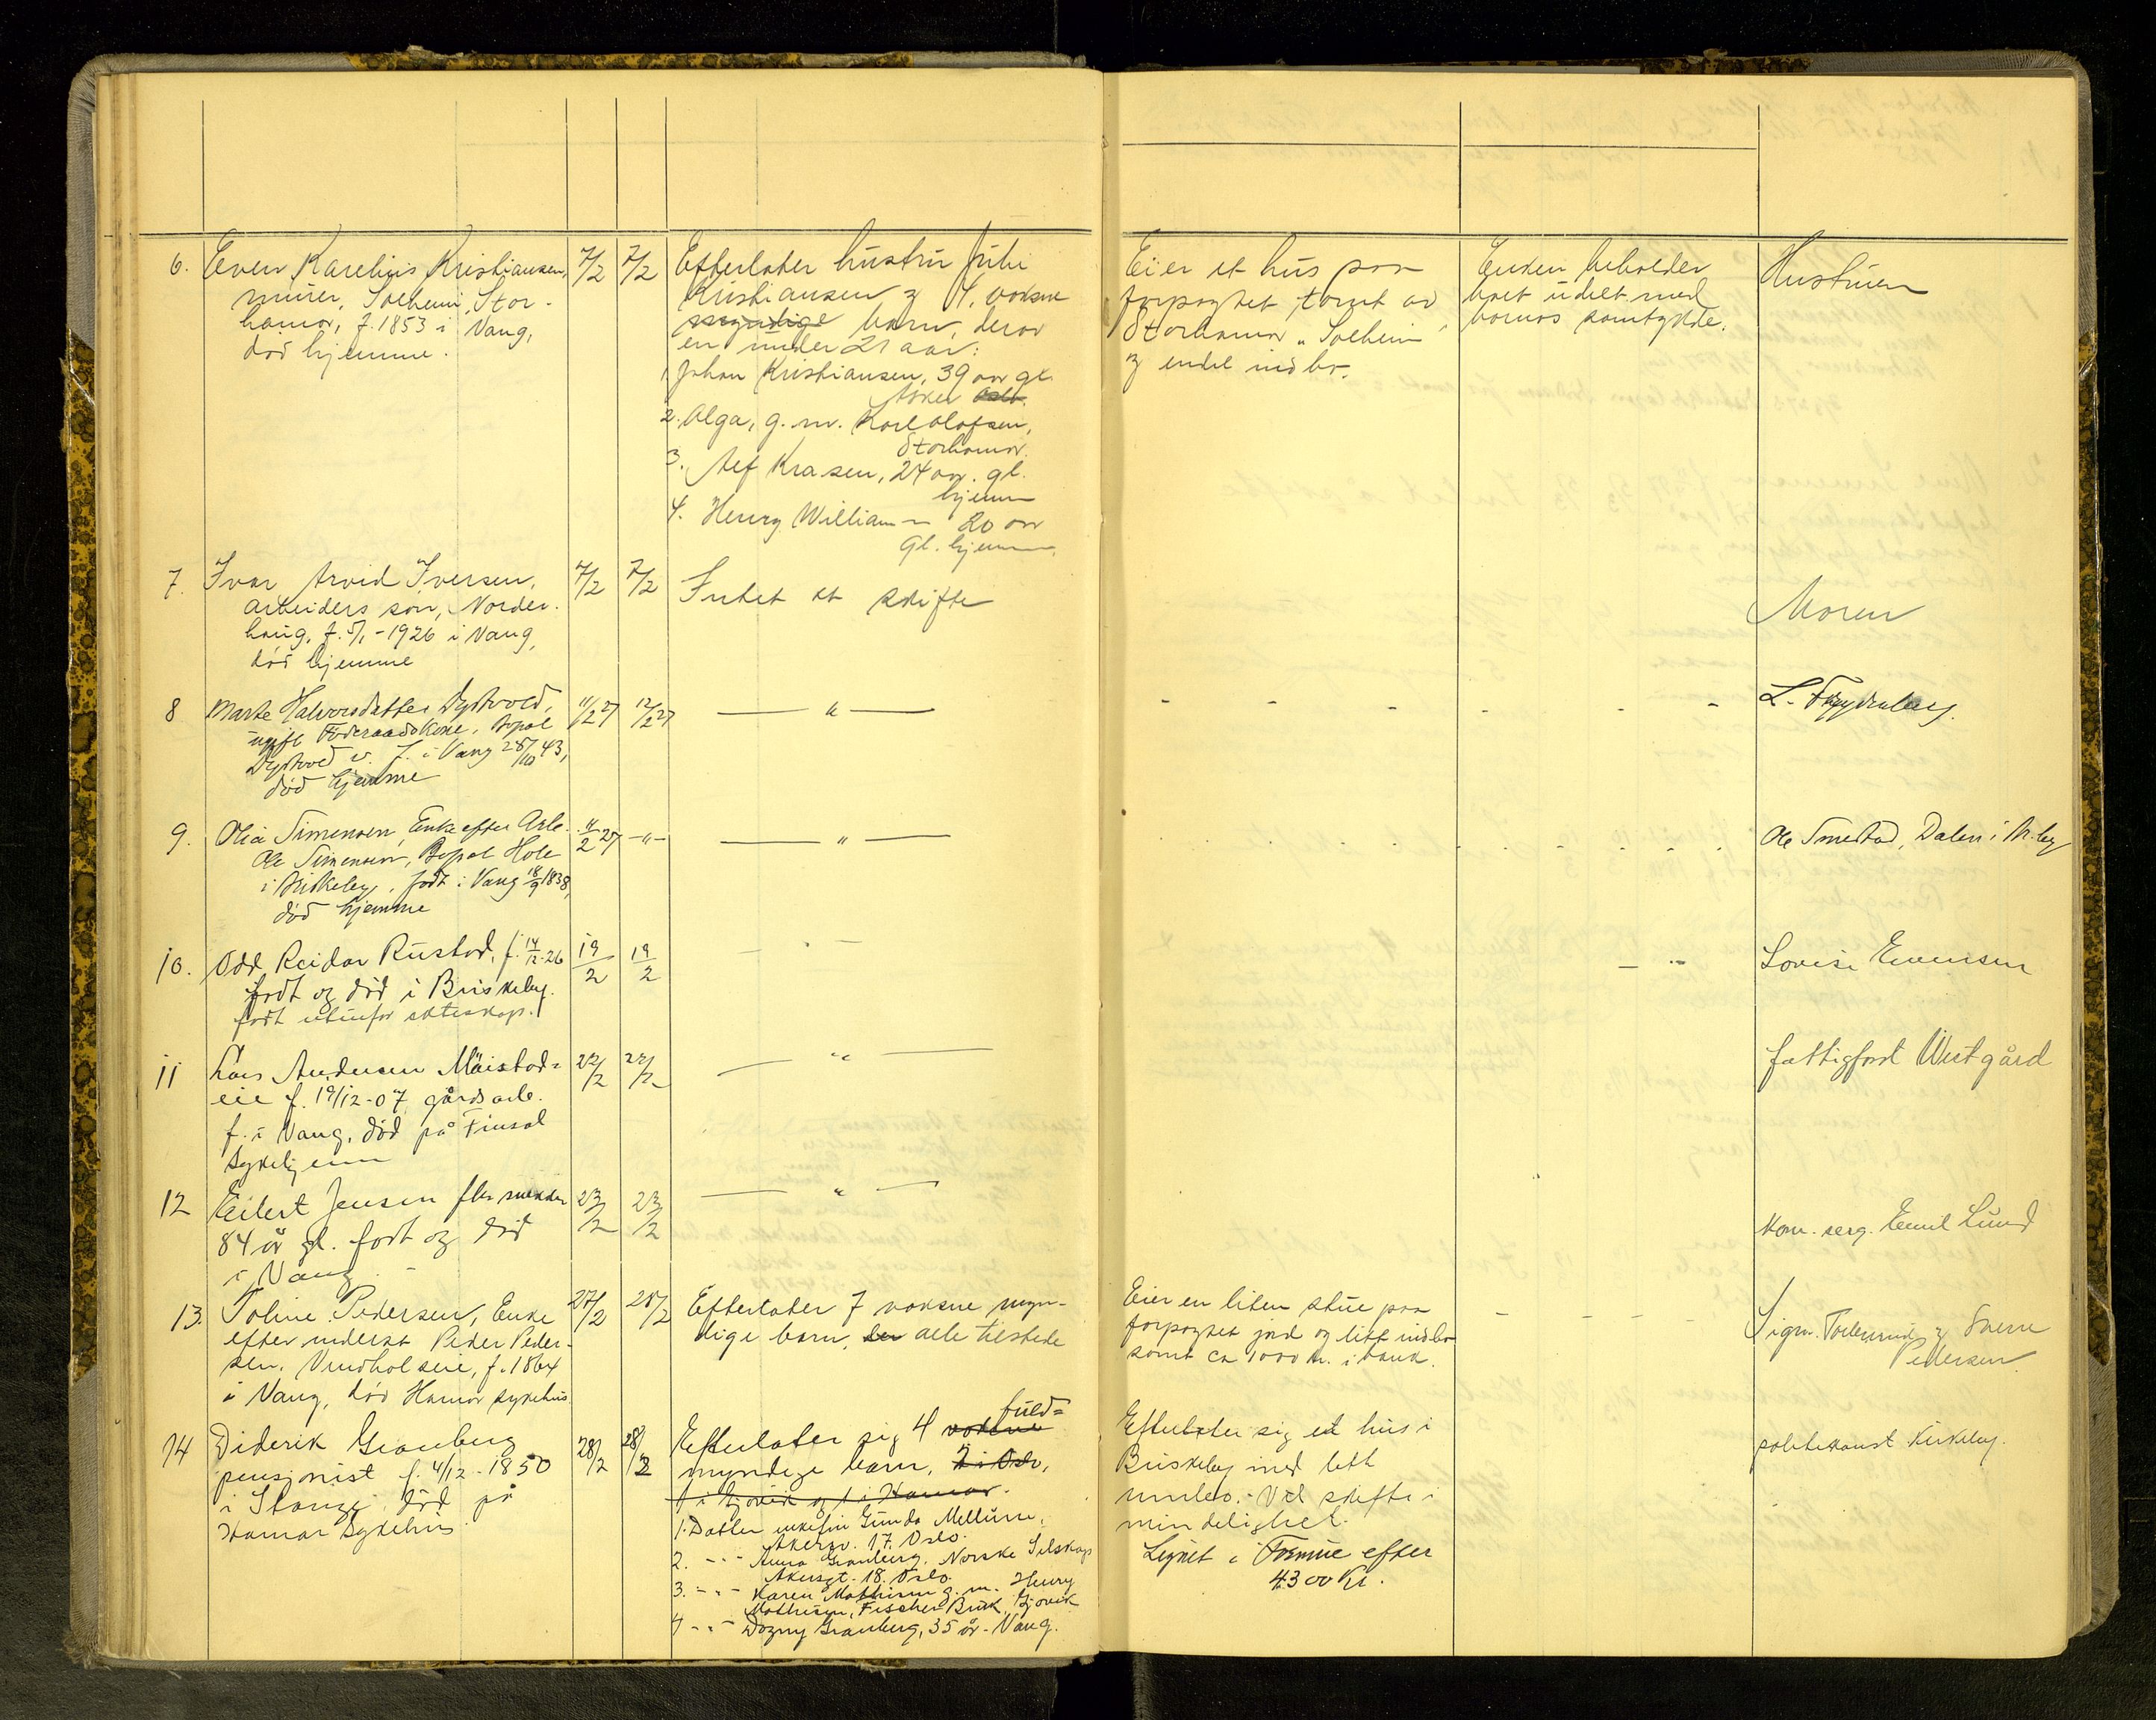 6. Even Karelius Kristiansen,
murer, Solheim, Stor-
hamar, f. 1853 i Vang,
død hjemme.
7/2 7/2
Efterlater hustru Julie
Kristiansen og 4 voksne
myndige barn, derav
en under 21 aar:
1. Johan Kristiansen, 39 aar gl.
Asker Oslo.
2. Olga, g. m. Karl Olafsen,
Storhamar.
3. Alf 24 aar. gl.
hjemme
4. Henry William - 20 aar
gl. hjemme.
Eier et hus paa
forpagtet tomt av
Storhamar "Solheim"
og endel indbo.
Enken beholder
boet udelt med
barnas samtykke.
Hustruen
7. Ivar Arvid Iversen,
arbeiders søn, Norder-
haug, f. 5/1 - 1926 i Vang,
død hjemme
7/2 7/2
Intet at skifte
Moren
8 Marte Halvorsdatter Dystvold,
ugift Føderaadskone, bopæl
Dystvold v. f. i Vang 28/10 43,
død hjemme
11/2 27 12/2 27
— " —
- - - - - -
L. Frydenberg.
9. Olia Simensen, Enke efter Arb.
Ole Simensen, Bopæl Hole
i Briskeby, født i Vang 18/9 1838,
død hjemme
11/2 27 -"-
— " —
Ole Smestad, Dalen i Br.by
10. Odd Reidar Rustad, f. 14/12-26
født og død i Briskeby.
født utenfor ekteskap.
19/2 19/2
— " —
— " —
Lovise Evensen
11 Lars Andersen Mæistad-
eie f. 19/12-07, gårdsarb.
f. i Vang, død på Finsal
Sykehjem
22/2 22/2
— " —
fattigforst Westgård
12 Eilert Jensen fhv snekker
84 år gl. født og død
i Vang
23/2 23/2
— " —
kom. serg. Emil Lund
13. Toline Pedersen, Enke
efter inderst Peder Peder-
sen, Vindholseie, f. 1864
i Vang, død Hamar sykehus
27/2 28/2
Efterlater 7 voksne myn-
dige barn, der alle tilstede
Eier en liten stue paa
forpagtet jord og litt indbo
samt ca 1000 kr. i bank.
- - - -
Sigm. og Sverre
Pedersen.
14 Diderik Granberg
pensjonist f. 4/12 - 1850
i Stange, død på
Hamar Sykehus
28/2 28/2
Efterlater sig 4 voksne fuld-
myndige barn, 2 i Oslo,
1 i Gjøvik og 1 i Hamar.
1. Datter enkefru Gunda Mellum,
Akersv. 17. Oslo.
2. - " - Anna Granberg. Norske Selskap
Akersgt. 18. Oslo.
3. - " - Karen Mathisen g. m. Henry
Mathisen, Fischer Bruk, Gjøvik
4 - " - Dagny Granberg, 35 år - Vang.
Efterlater sig et hus i
Briskeby med lett
innbo. - Vil skifte i
mindelighet.
Lignet i Formue efter
4300 Kr.
politikonst Kirkeby.